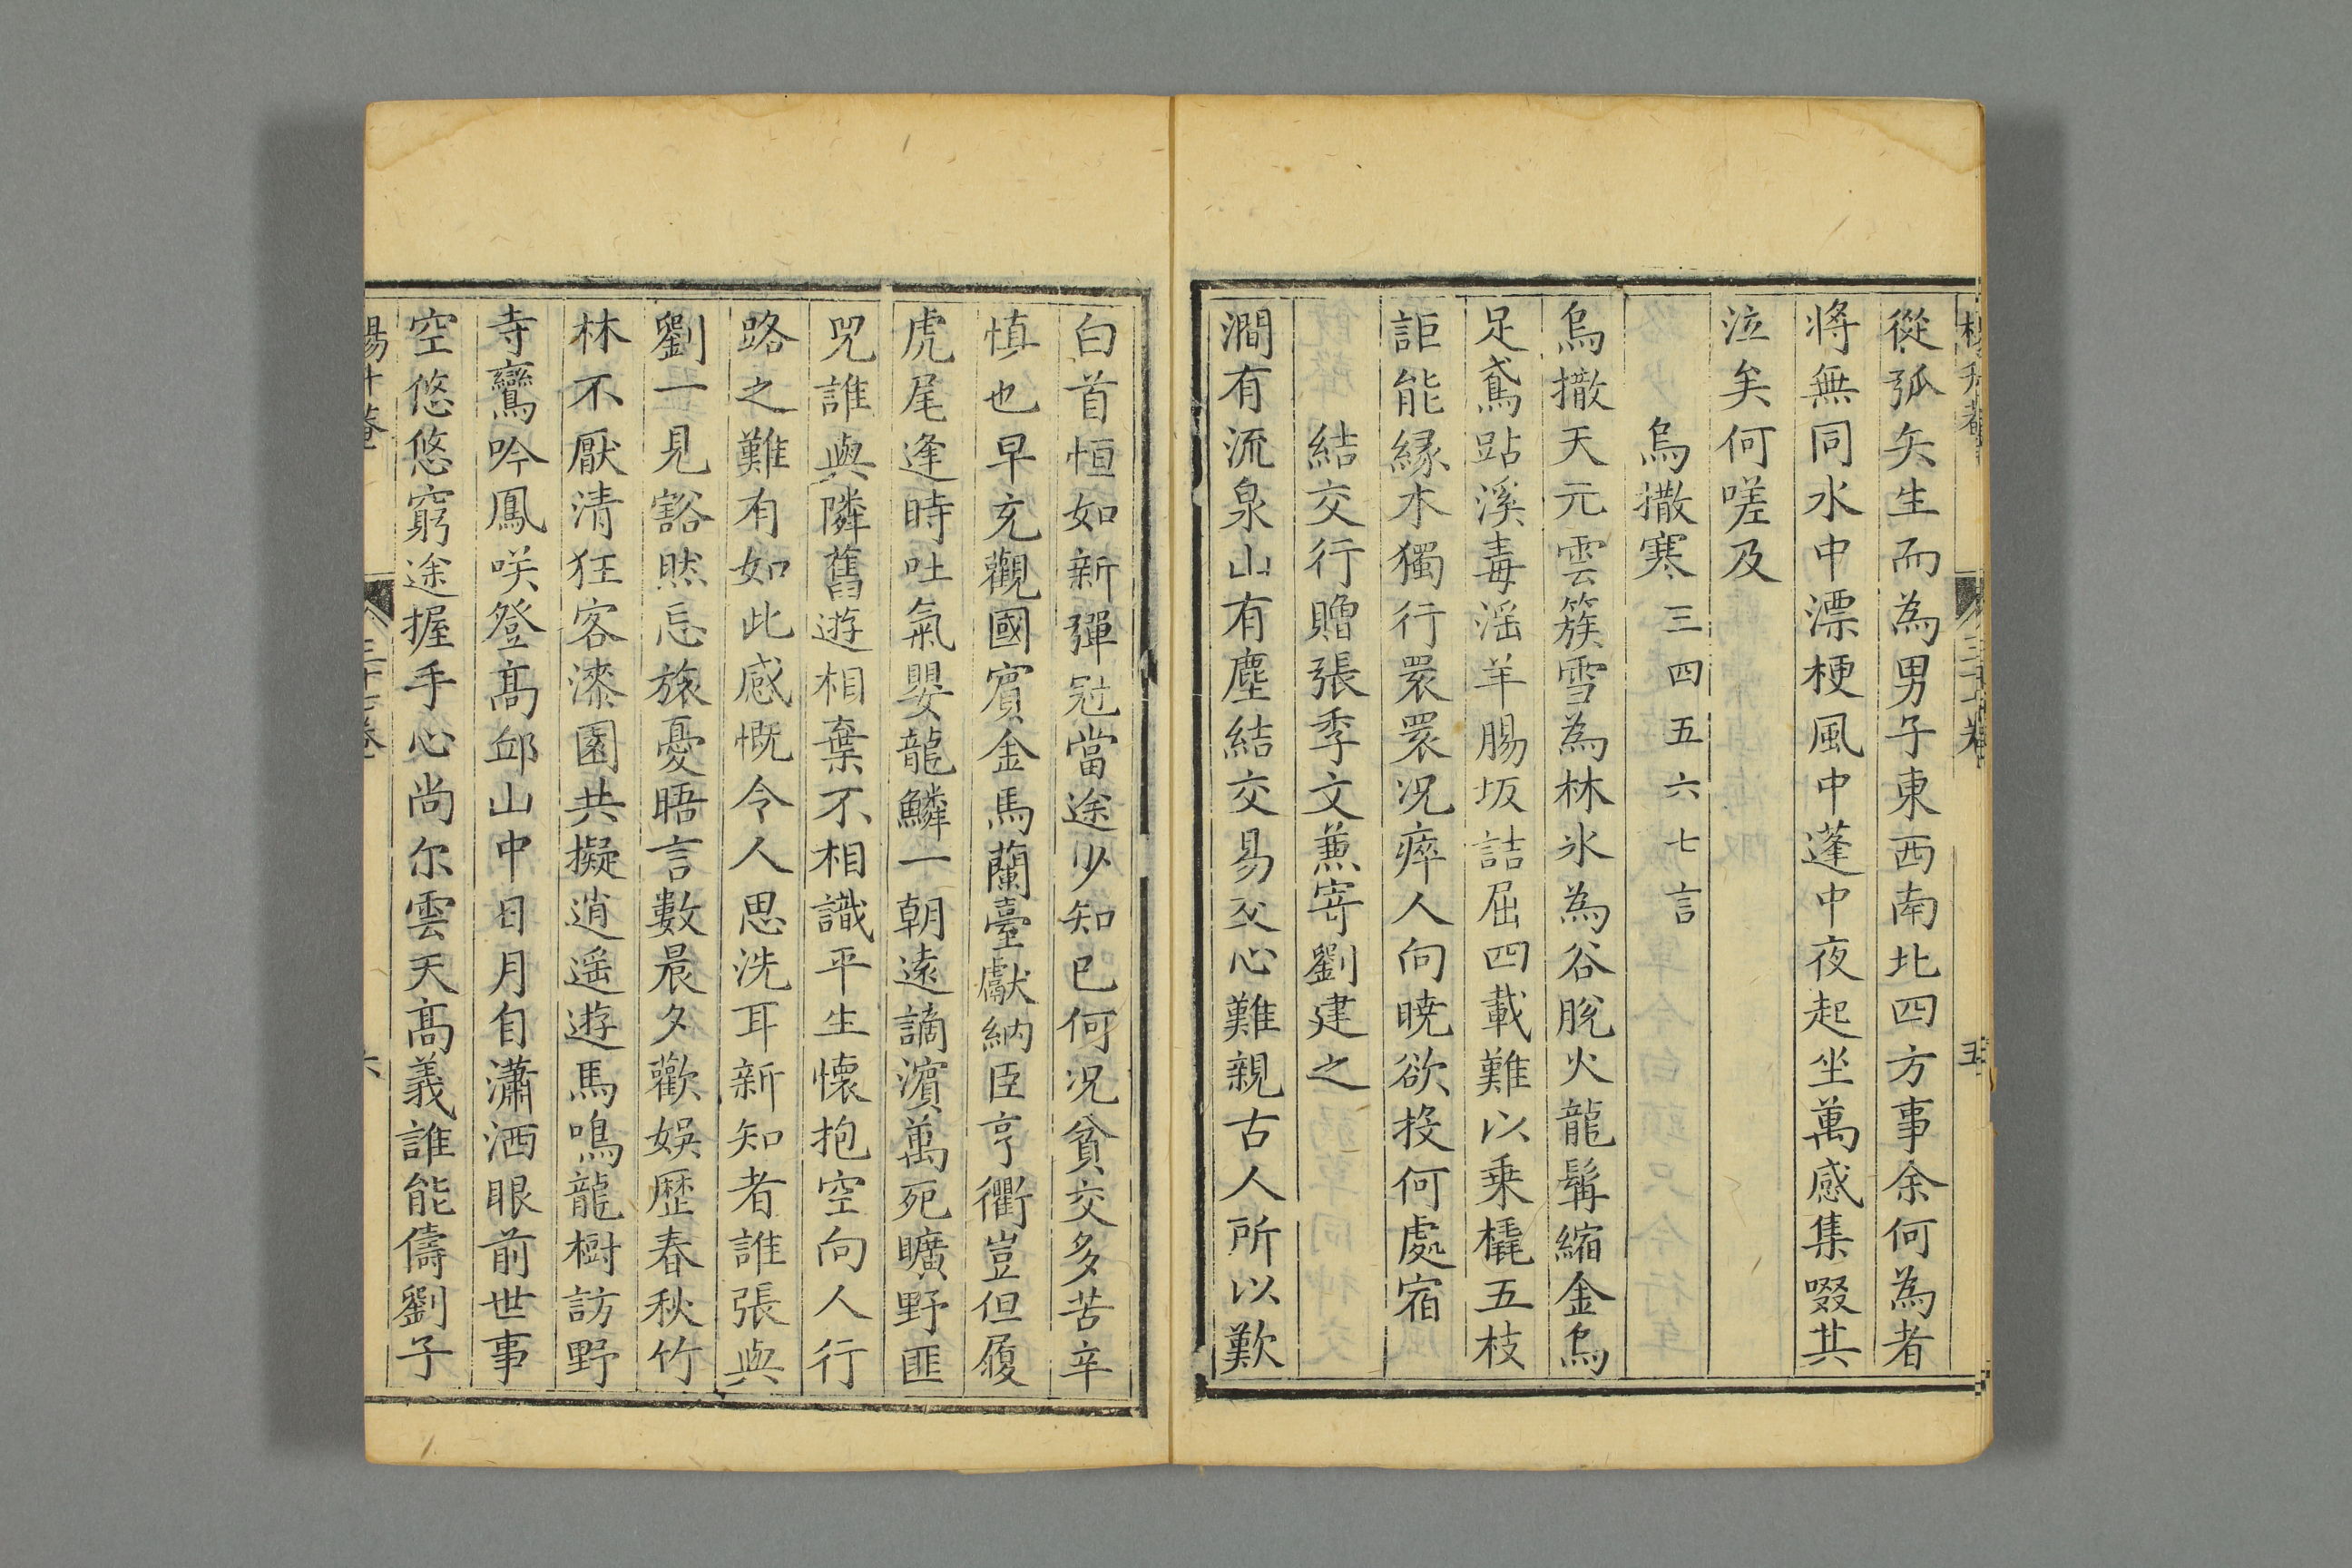 從弧矢生而為男子東西南北四方事余何為者
將無同水中漂梗風中蓬中夜起坐萬感集啜其
泣矣何嗟及
烏撒寒三四五六七言
烏撒天元雲簇雪為林氷為谷脫火龍髯縮金烏
足鳶跕溪毒滛羊腸坂詰屈四載難以乗橇五枝
詎能緣木獨行睘睘况瘁人向曉欲投何處宿
結交行贈張季文蒹寄劉建之
澗有流泉山有塵結交易交心難親古人所以歎
白首恒如新彈冠當途少知已何况貧交多苦辛
慎也早充觀國賓金馬蘭臺獻納臣亨衢豈但履
虎尾逢時吐氣嬰龍鱗一朝遠謫濵萬死曠野匪
兕誰與隣舊遊相棄不相識平生懷抱空向人行
路之難有如此感慨令人思洗耳新知者誰張與
劉一見豁然忘旅憂晤言數晨夕歡娛歴春秋竹
林不厭清狂客漆園共擬逍遥遊馬鳴龍樹訪野
寺鸞吟鳳咲登髙邱山中日月自瀟洒眼前世事
空悠悠窮途握手心尚尔雲天髙義誰能儔劉子